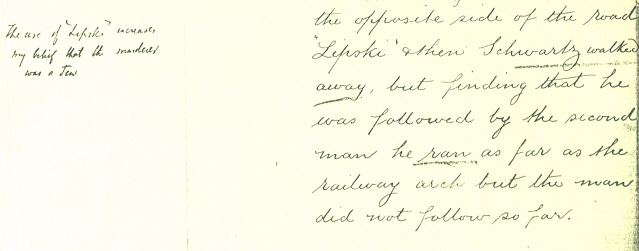 The use of "Lipski" increases
my belief that the murderer
was a Jew
the opposite side of the road
"Lipski" & then Schwartz walked
away, but finding that he
was followed by the second
man he ran as far as the
railway arch but the man
did not follow so far.